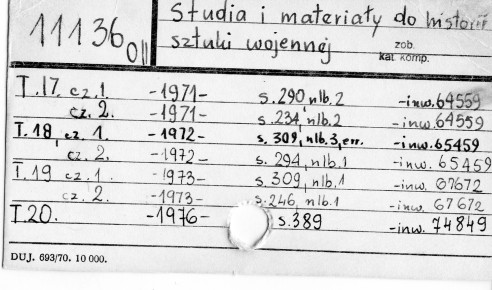 11136 OII
Studia i materiały do historii
sztuki wojennej
zob.
kat. komp.
T.17. cz.1 -1971- s.290, nlb.2 -inw.64559
cz.2. -1971- s.234, nlb.2 -inw.64559
T.18, cz.1. -1972- s.309, nlb.3, err. -inw.65459
cz.2. -1972- s.294, nlb.1 -inw.65459
T.19 cz.1. -1973- s.309, nlb.1 -inw.67672
cz.2. -1973- s.246, nlb.1 -inw.67672
T.20. -1976- s.389 -inw.74849
DUJ. 693/70. 10 000.